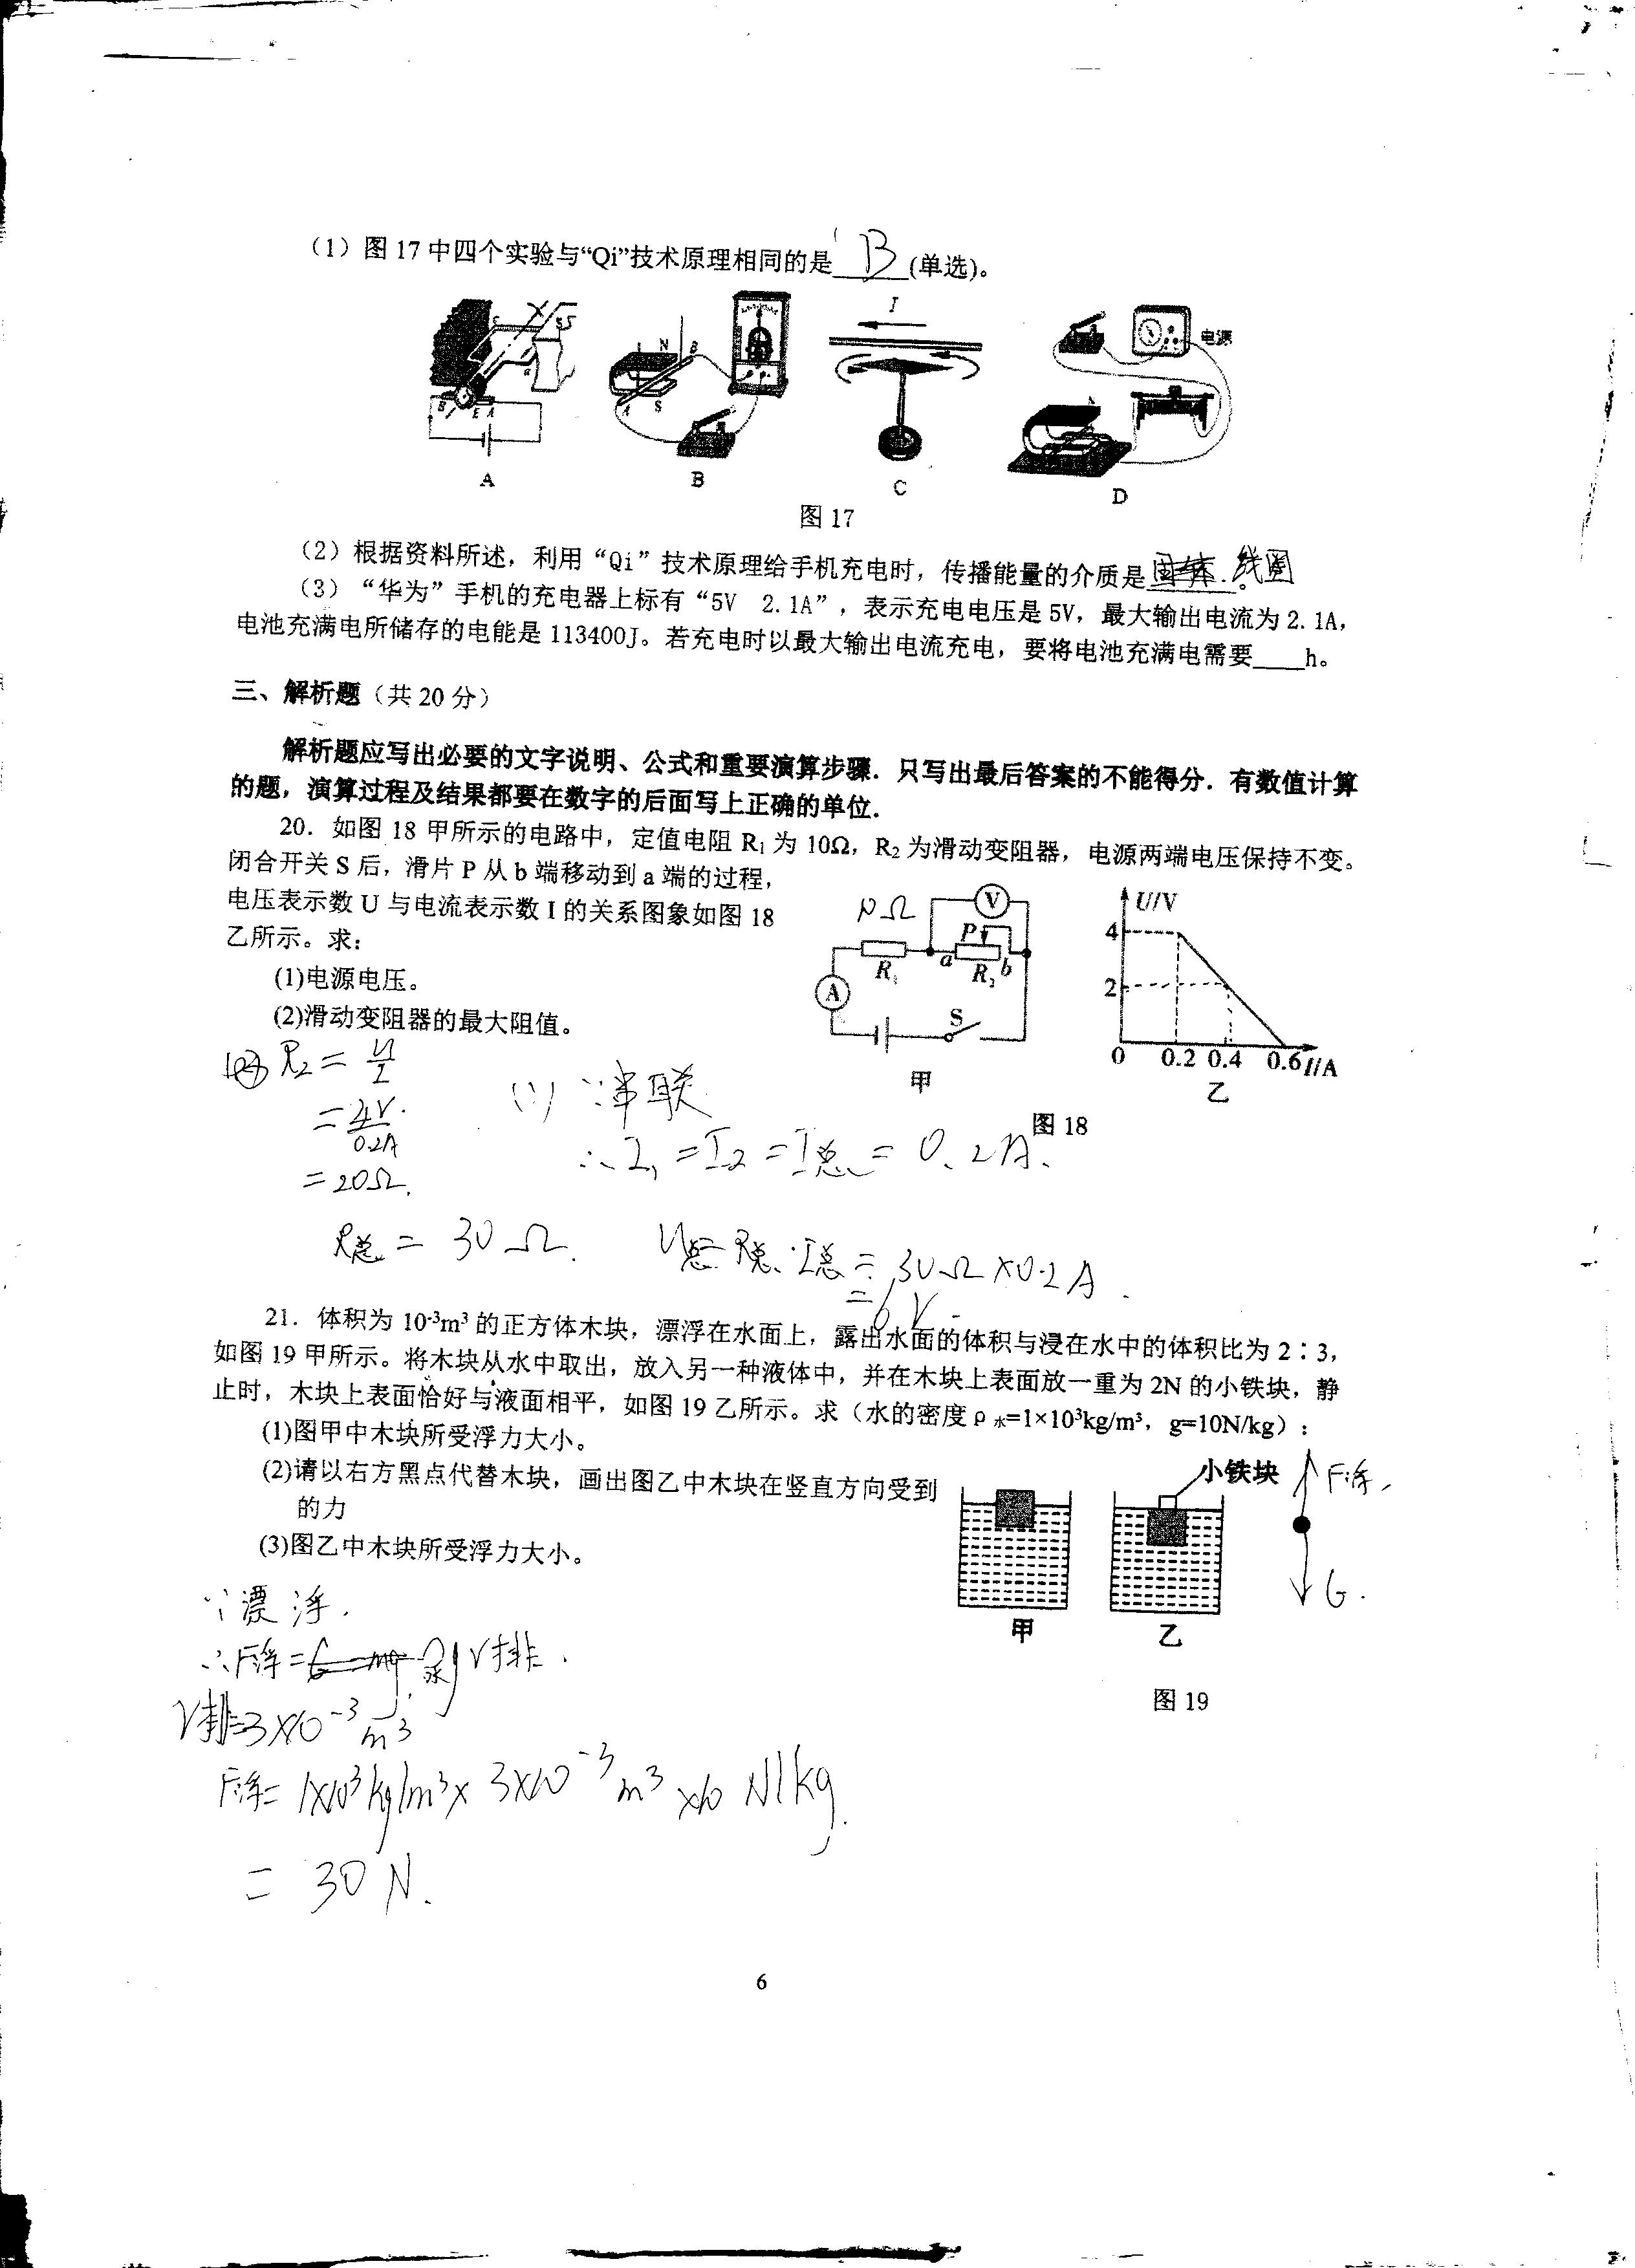 （1）图 17 中四个实验与“Qi”技术原理相同的是 B (单选)。
I
电源
N
B
A
S
A
B
C
D
图 17
（2）根据资料所述，利用“Qi”技术原理给手机充电时，传播能量的介质是 线圈。
（3）“华为”手机的充电器上标有“5V 2.1A”，表示充电电压是 5V，最大输出电流为 2.1A，
电池充满电所储存的电能是 113400J。若充电时以最大输出电流充电，要将电池充满电需要____h。
三、解析题（共 20 分）
解析题应写出必要的文字说明、公式和重要演算步骤．只写出最后答案的不能得分．有数值计算
的题，演算过程及结果都要在数字的后面写上正确的单位．
20．如图 18 甲所示的电路中，定值电阻 R₁ 为 10Ω，R₂ 为滑动变阻器，电源两端电压保持不变。
闭合开关 S 后，滑片 P 从 b 端移动到 a 端的过程，
电压表示数 U 与电流表示数 I 的关系图象如图 18
乙所示。求：
(1)电源电压。
(2)滑动变阻器的最大阻值。
10Ω
V
P
R₁
a
R₂
b
A
S
甲
U/V
4
2
0 0.2 0.4 0.6 I/A
乙
图 18
R₂ = U/I
= 4V/0.2A
= 20Ω.
(1) ∵串联
∴I₁ = I₂ = I总 = 0.2A.
R总 = 30Ω.
U总 = R总·I总 = 30Ω×0.2A.
= 6V.
21．体积为 10⁻³m³ 的正方体木块，漂浮在水面上，露出水面的体积与浸在水中的体积比为 2∶3，
如图 19 甲所示。将木块从水中取出，放入另一种液体中，并在木块上表面放一重为 2N 的小铁块，静
止时，木块上表面恰好与液面相平，如图 19 乙所示。求（水的密度ρ水=1×10³kg/m³，g=10N/kg）：
(1)图甲中木块所受浮力大小。
(2)请以右方黑点代替木块，画出图乙中木块在竖直方向受到
的力
(3)图乙中木块所受浮力大小。
小铁块
F浮
G.
甲
乙
图 19
∵漂浮.
∴F浮 = G = mg ρ水gV排.
V排=3×10⁻³m³
F浮= 1×10³kg/m³× 3×10⁻³m³ ×10 N/kg.
= 30 N.
6